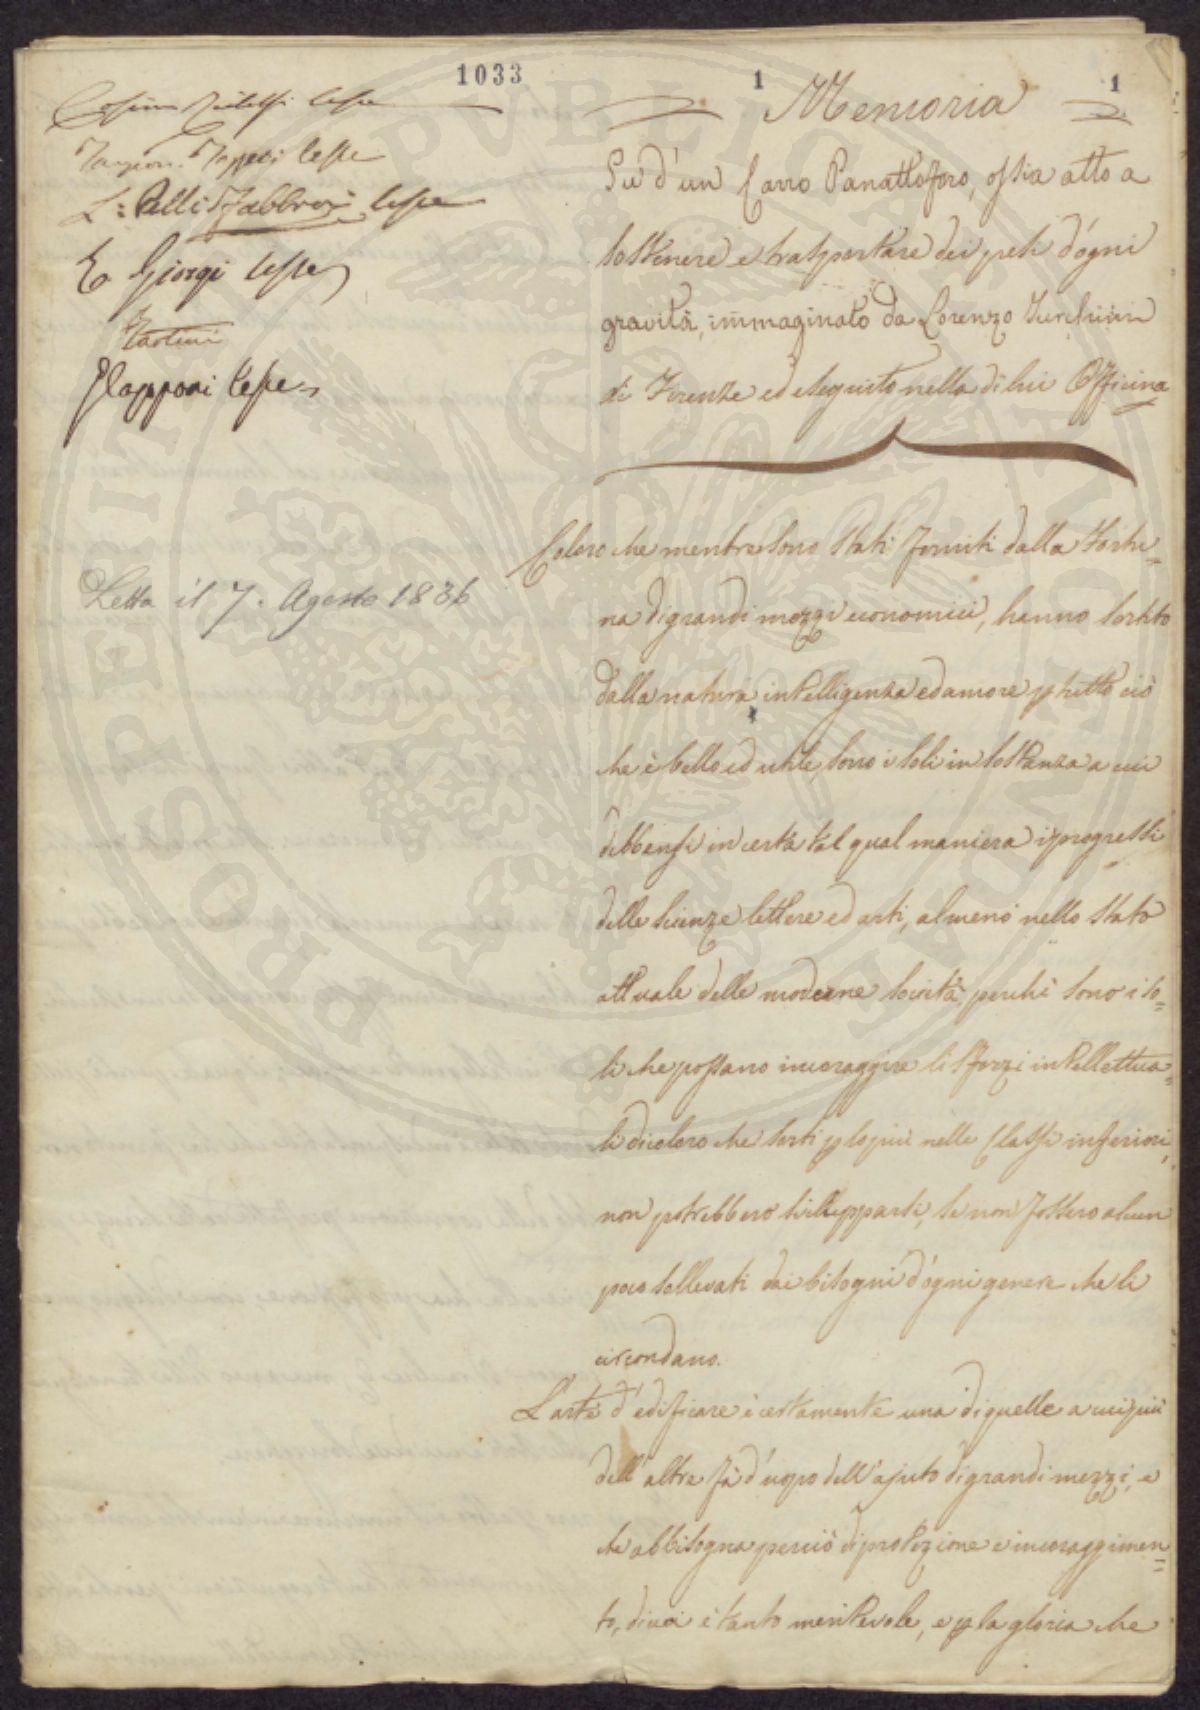 1033
1
1
Memoria
Cosimo Ridolfi lesse
Targioni Tozzetti lesse
L: Pelli Fabbroni lesse
E Giorgi lesse
Tartini
Capponi lesse
Letta il 7. Agosto 1836
Su d'un Carro Panattoforo, ossia atto a
sostenere e trasportare dei pesi d'ogni
gravità, immaginato da Lorenzo Turchini
di Firenze ed eseguito nella di lui Officina
Coloro che mentre sono stati forniti dalla Fortu=
na di grandi mezzi economici, hanno sortito
dalla natura intelligenza ed amore p tutto ciò
che è bello ed utile, sono i soli in sostanza a cui
debbensi in certa tal qual maniera i progressi
delle scienze lettere ed arti, almeno nello stato
attuale delle moderne società, perchè sono i so=
li che possano incoraggire li sforzi intellettua=
li di coloro che sorti p lo più nelle Classi inferiori,
non potrebbero svilupparsi, se non fossero alcun
poco sollevati dai bisogni d'ogni genere che li
circondano.
L'arte d'edificare è certamente una di quelle a cui più
dell'altre fà d'uopo dell'ajuto di grandi mezzi, e
che abbisogna perciò di protezione e incoraggimen=
to, di cui è tanto meritevole, e p la gloria che
PROSPERITATI PVBLICAE AVGENDAE